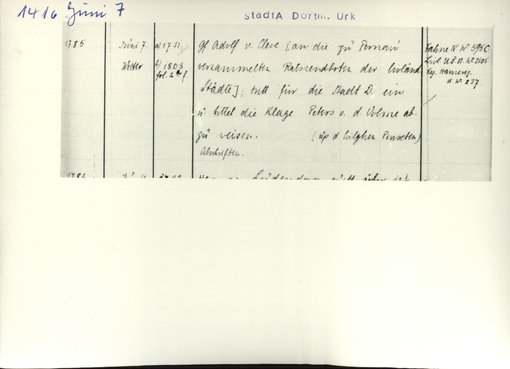 1416 Juni 7
StadtA Dortm. Urk
1785
Juni 7.
Wetter
n 1751
b) 1808
fol. 2
gf Adolf v. Cleve [an die zu Pernau
versammelten Ratssendboten der livländ
Städte]; tritt für die Stadt D. ein
u bittet die Klage Peters v. d. Volme ab
zu weisen.
Abschriften.
Fahne IV Nº 395C
Livl. U.B. Nº
Reg. Hanserec.
Nº 237.
1786